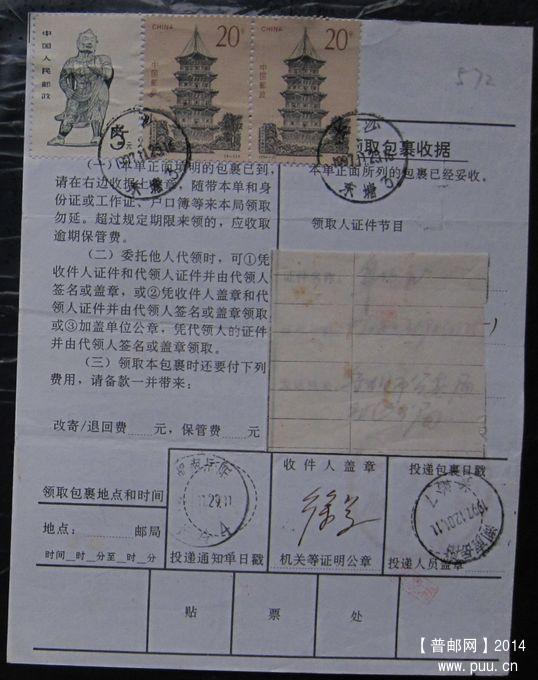 中国人民邮政
CHINA
20分
中国邮政
CHINA
20分
中国邮政
572
长沙
1997.11.25.16
长沙
1997.11.25.16
领取包裹收据
(一)本单正面填明的包裹已到,
请在右边收据上盖章,随带本单和身
份证或工作证、户口簿等来本局领取
勿延。超过规定期限来领的,应收取
逾期保管费。
(二)委托他人代领时,可①凭
收件人证件和代领人证件并由代领人
签名或盖章,或②凭收件人盖章和代
领人证件并由代领人签名或盖章领取,
或③加盖单位公章,凭代领人的证件
并由代领人签名或盖章领取。
(三)领取本包裹时还要付下列
费用,请备款一并带来:
改寄/退回费 元,保管费 元
本单正面所列的包裹已经妥收。
领取人证件节目
领取包裹地点和时间
地点: 邮局
时间 时 分至 时 分
11.29.11
4
投递通知单日戳
收件人盖章
机关等证明公章
投递包裹日戳
1997.12.01.11
投递人员盖章
贴 票 处
【普邮网】2014
www.puu.cn